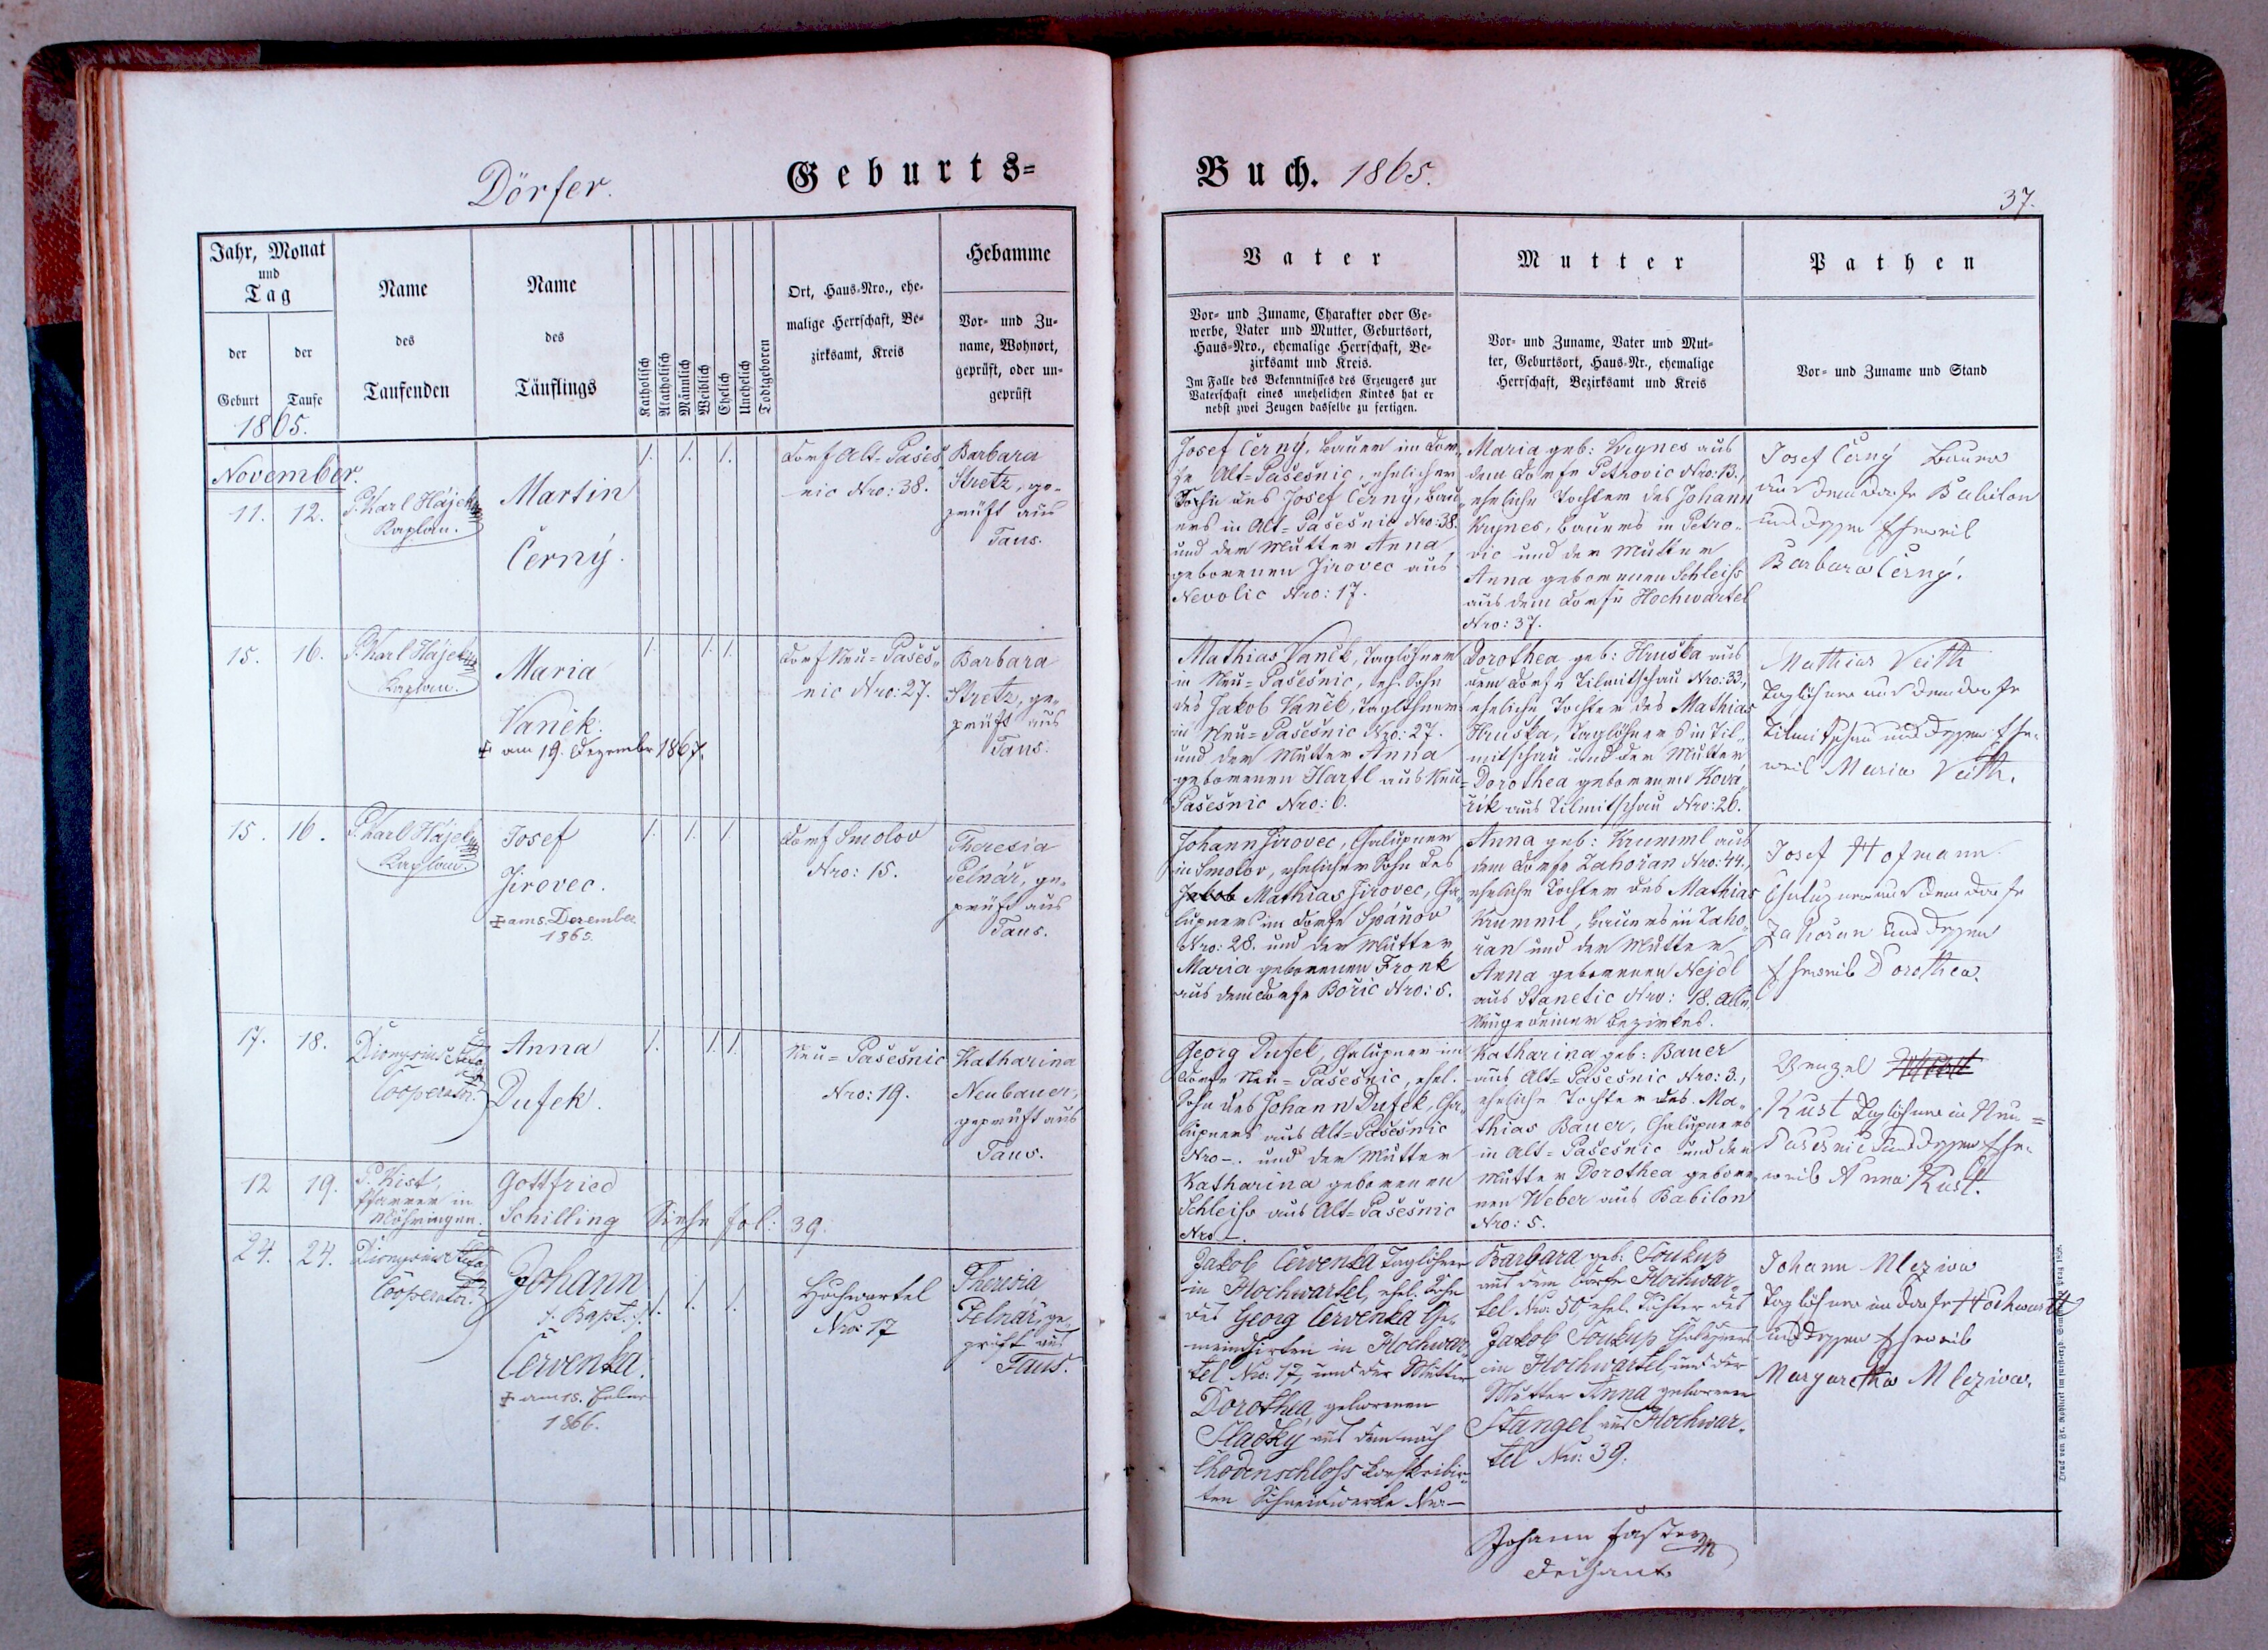 Dörfer.
Geburts=
Jahr, Monat
und
Tag
der
Geburt
der
Taufe
Name
des
Taufenden
Name
des
Täuflings
Katholisch
Akatholisch
Männlich
Weiblich
Ehelich
Unehelich
Todtgeboren
Ort, Haus-Nro., ehe-
malige Herrschaft, Be-
zirksamt, Kreis
Hebamme
Vor- und Zu-
name, Wohnort,
geprüft, oder un-
geprüft
1865.
November.
11. 12.
P. Karl Hájek
Kaplan.
Martin
Černý.
1. 1. 1.
Dorf Alt-Pašeš„
nic Nro: 38.
Barbara
Stretz, ge„
prüft aus
Taus.
15. 16.
P. Karl Hájek
Kaplan.
Maria
Vaněk.
‡ am 19. Dezember 1867.
1. 1. 1.
Dorf Neu-Pašeš„
nic Nro: 27.
Barbara
Stretz, ge„
prüft aus
Taus.
15. 16.
P. Karl Hájek
Kaplan.
Josef
Jirovec.
‡ am 5. Dezember
1865.
1. 1. 1.
Dorf Smolov
Nro: 15.
Theresia
Pelnář, ge„
prüft aus
Taus.
17. 18.
Dionysius
Cooperator.
Anna
Dufek.
1. 1. 1.
Neu=Pašešnic
Nro: 19.
Katharina
Neubauer,
geprüft aus
Taus.
12 19.
P. Kist,
Pfarrer in
Möhringen.
Gottfried
Schilling Siehe fol: 39.
24. 24.
Dionysius
Cooperator.
Johann
/: Bapt. :/
Červenka.
‡ am 15. Feber
1866.
1. 1. 1.
Hochwartel
Nro: 17
Theresia
Pelnář, ge„
prüft aus
Taus.
Buch. 1865.
37.
Vater
Vor- und Zuname, Charakter oder Ge-
werbe, Vater und Mutter, Geburtsort,
Haus-Nro., ehemalige Herrschaft, Be-
zirksamt und Kreis.
Im Falle des Bekenntnisses des Erzeugers zur
Vaterschaft eines unehelichen Kindes hat er
nebst zwei Zeugen dasselbe zu fertigen.
Mutter
Vor- und Zuname, Vater und Mut-
ter, Geburtsort, Haus-Nr., ehemalige
Herrschaft, Bezirksamt und Kreis
Pathen
Vor- und Zuname und Stand
Josef Černý, Bauer im Dor„
fe Alt-Pašešnic, ehelicher
Sohn des Josef Černý, Bau„
ers in Alt-Pašešnic Nro: 38.
und der Mutter Anna
geborenen Jirovec aus
Nevolic Nro: 17.
Maria geb: Krynes aus
dem Dorfe Petrovic Nro: 13.,
eheliche Tochter des Johann
Krynes, Bauers in Petro„
vic und der Mutter
Anna geborenen Schleiss
aus dem Dorfe Hochwartel
Nro: 37.
Josef Černý Bauer
aus dem Dorfe Babilon
und dessen Eheweib
Barbara Černý.
Mathias Vaněk, Taglöhner
in Neu-Pašešnic, eh. Sohn
des Jakob Vaněk, Taglöhners
in Neu-Pašešnic Nro: 27.
und der Mutter Anna
geborenen Hartl aus Neu-
Pašešnic Nro: 6.
Dorothea geb: Hruška aus
dem Dorfe Tilmitschau Nro: 33.,
eheliche Tochter des Mathias
Hruška, Taglöhners in Til„
mitschau und der Mutter
Dorothea geborenen Ková„
řík aus Tilmitschau Nro: 26.
Mathias Veith
Taglöhner aus dem Dorfe
Tilmitschau und dessen Ehe„
weib Maria Veith.
Johann Jirovec, Chalupner
in Smolov, ehelicher Sohn des
Jakob Mathias Jirovec, Cha„
lupners im Dorfe Spáňov
Nro: 28. und der Mutter
Maria geborenen Fronk
aus dem Dorfe Bořic Nro: 5.
Anna geb: Krumml aus
dem Dorfe Zahořan Nro: 44.,
eheliche Tochter des Mathias
Krumml, Bauers in Zaho„
řan und der Mutter
Anna geborenen Nejdl
aus Stanetic Nro: 18.
Neugedeiner Bezirkes.
Josef Hofmann
Chalupner aus dem Dorfe
Zahořan und dessen
Eheweib Dorothea.
Georg Dufek, Chalupner im
Dorfe Neu=Pašešnic, ehel.
Sohn des Johann Dufek, Cha„
lupners aus Alt-Pašešnic
Nro –. und der Mutter
Katharina geborenen
Schleiss aus Alt=Pašešnic
Nro –.
Katharina geb: Bauer
aus Alt-Pašešnic Nro: 3.,
eheliche Tochter des Ma„
thias Bauer, Chalupners
in Alt-Pašešnic und der
Mutter Dorothea gebore„
nen Weber aus Babilon
Nro: 5.
Wenzel
Kust Taglöhner in Neu=
Pašešnic und dessen Ehe„
weib Anna Kust.
Jakob Červenka Taglöhner
in Hochwartel, ehel. Sohn
des Georg Červenka Ge„
meindhirten in Hochwar„
tel Nro: 17, und der Mutter
Dorothea, geborenen
Sladký aus dem nach
Chodenschloss konskribir„
ten Schneidwerke Nro –
Barbara geb. Soukup
aus dem Dorfe Hochwar„
tel Nro: 50 ehel. Tochter des
Jakob Soukup, Chalupners
in Hochwartel, und der
Mutter Anna geborenen
Stangel aus Hochwar„
tel Nro: 39.
Johann Mleziva
Taglöhner im Dorfe Hochwartl
und dessen Eheweib
Margaretha Mleziva.
Johann Faster
Dechant